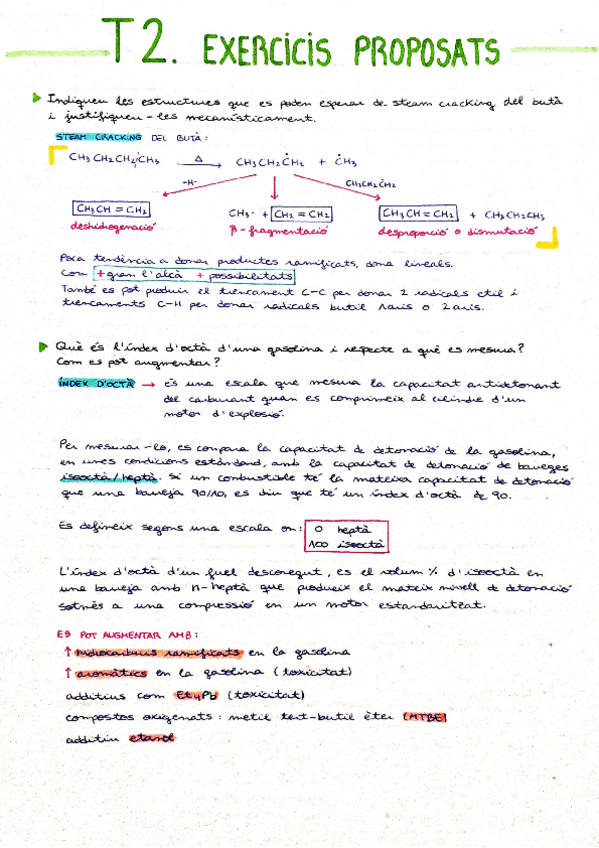 T2. EXERCICIS PROPOSATS
Indiqueu les estructures que es poden esperar de steam cracking del butà
i justifiqueu-les mecanísticament.
STEAM CRACKING DEL BUTÀ:
CH3CH2CH2CH3 Δ CH3CH2ĊH2 + ĊH3
-H· CH3CH2ĊH2
CH3CH=CH2 CH3· + CH2=CH2 CH3CH=CH2 + CH3CH2CH3
deshidrogenació β-fragmentació desproporció o dismutació
Poca tendència a donar productes ramificats, dona lineals.
Com + gran l'alcà + possibilitats
També es pot produir el trencament C-C per donar 2 radicals etil i
trencaments C-H per donar radicals butil 1aris o 2aris.
Què és l'índex d'octà d'una gasolina i respecte a què es mesura?
Com es pot augmentar?
ÍNDEX D'OCTÀ → és una escala que mesura la capacitat antidetonant
del carburant quan es comprimeix al cilindre d'un
motor d'explosió.
Per mesurar-lo, es compara la capacitat de detonació de la gasolina,
en unes condicions estàndard, amb la capacitat de detonació de barreges
isooctà/heptà. Si un combustible té la mateixa capacitat de detonació
que una barreja 90/10, es diu que té un índex d'octà de 90.
Es defineix segons una escala on: 0 heptà
100 isooctà
L'índex d'octà d'un fuel desconegut, es el volum % d'isooctà en
una barreja amb n-heptà que produeix el mateix nivell de detonació
sotmès a una compressió en un motor estandaritzat.
ES POT AUGMENTAR AMB:
↑ hidrocarburs ramificats en la gasolina
↑ aromàtics en la gasolina (toxicitat)
additius com Et4Pb (toxicitat)
compostos oxigenats: metil tert-butil èter (MTBE)
additiu etanol